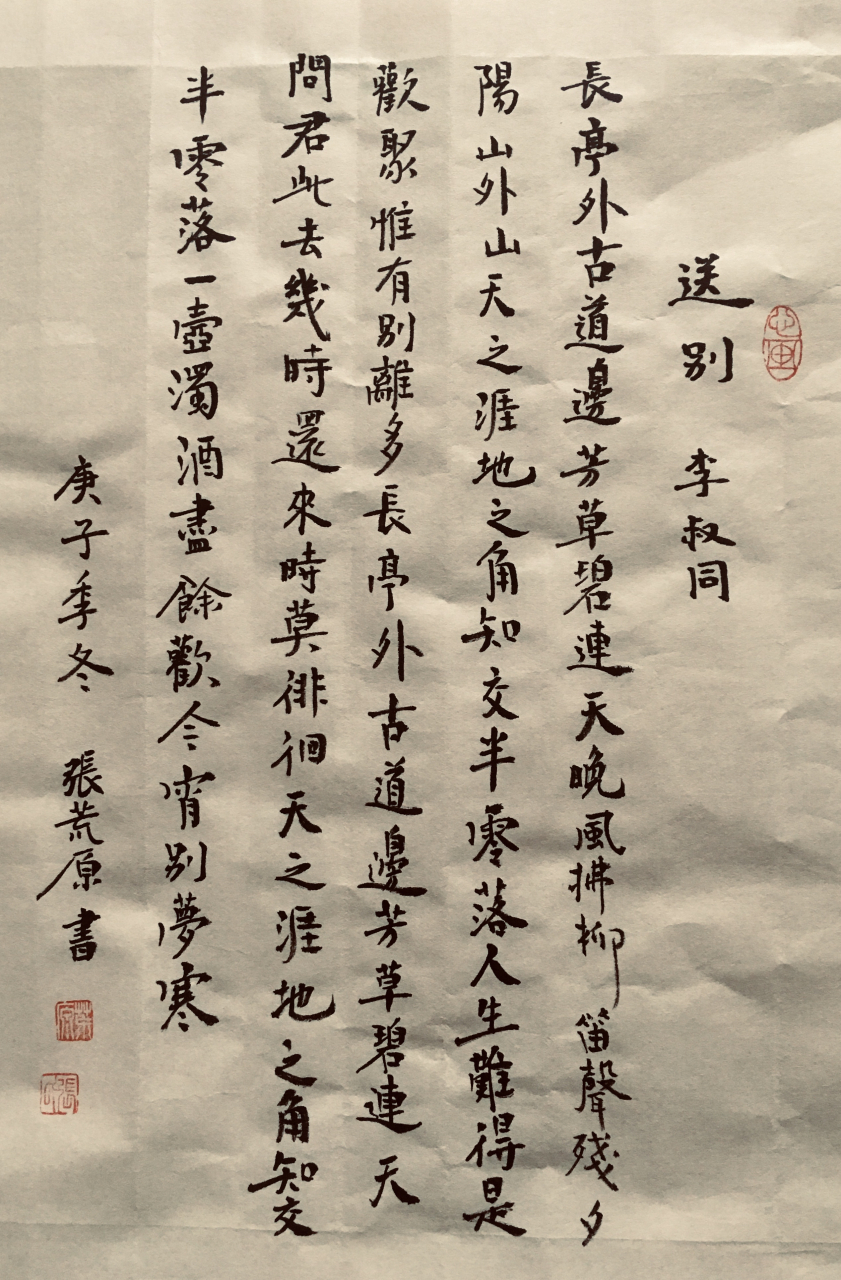 送別 李叔同
長亭外古道邊芳草碧連天晚風拂柳笛聲殘夕
陽山外山天之涯地之角知交半零落人生難得是
歡聚惟有別離多長亭外古道邊芳草碧連天
問君此去幾時還來時莫徘徊天之涯地之角知交
半零落一壺濁酒盡餘歡今宵別夢寒
庚子季冬 張荒原書